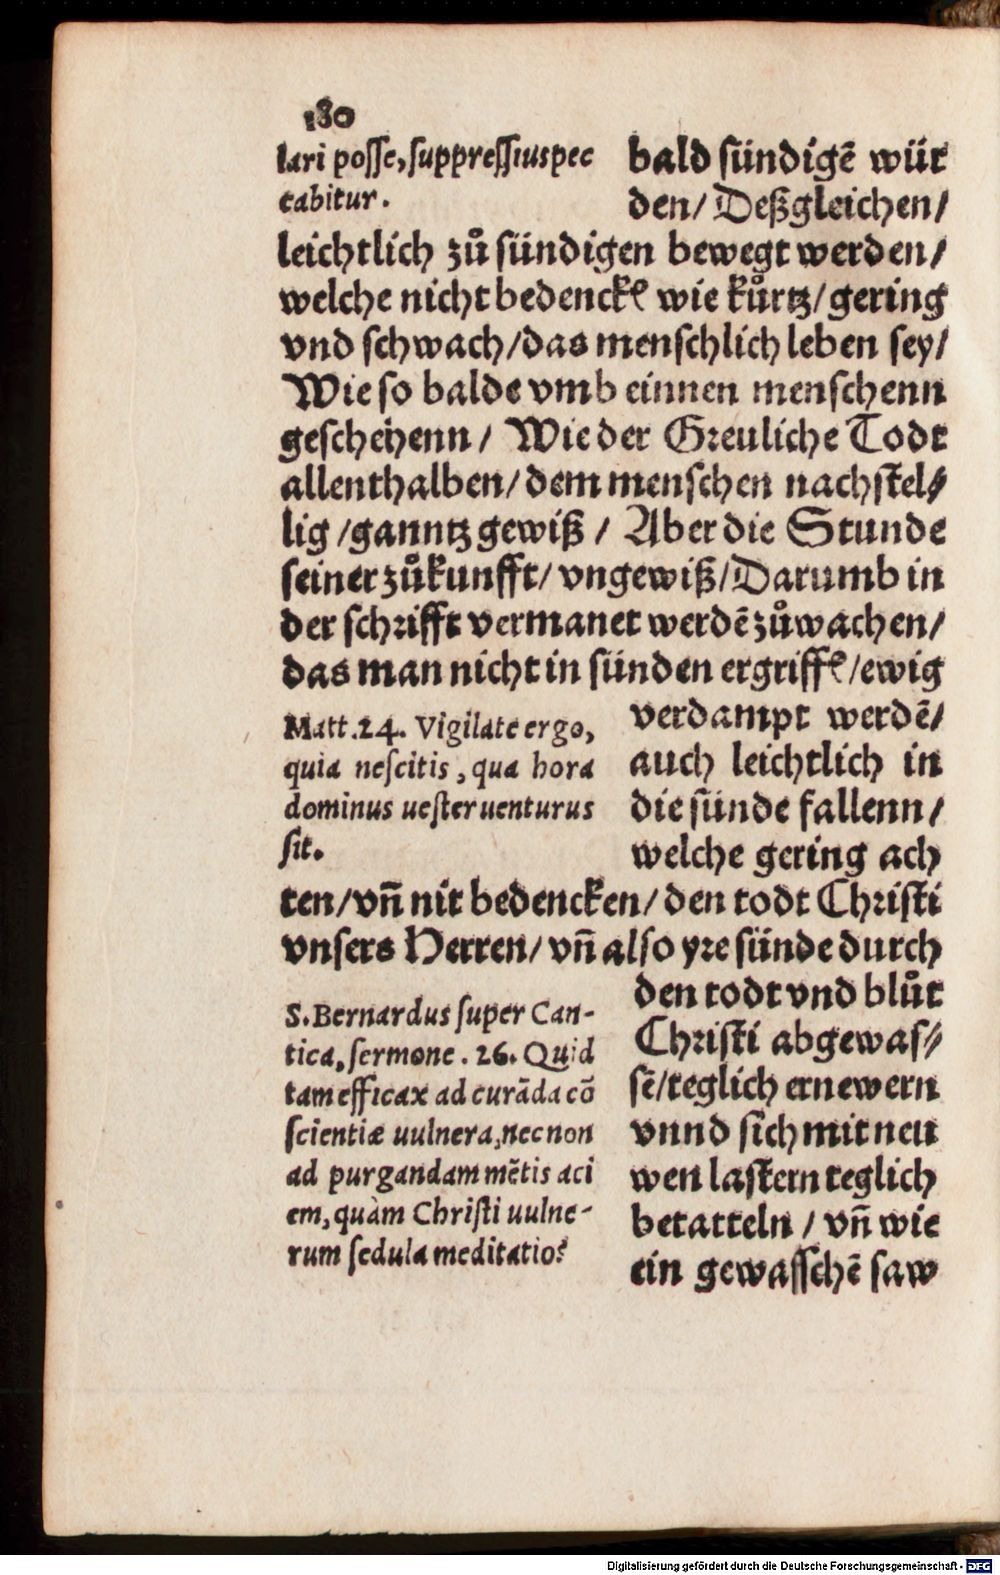 180
lari posse, suppressius pec
cabitur.
bald sündigē wür
den/ Deßgleichen/
leichtlich zů sündigen bewegt werden/
welche nicht bedenckē wie kůrtz/ gering
vnd schwach/ das menschlich leben sey/
Wie so balde vmb einnen menschenn
gescheẏenn/ Wie der Greuliche Todt
allenthalben/ dem menschen nachstel⸗
lig/ ganntz gewiß/ Aber die Stunde
seiner zůkunfft/ vngewiß/ Darumb in
der schrifft vermanet werdē zůwachen/
das man nicht in sünden ergriffē/ ewig
Matt.24. Vigilate ergo,
quia nescitis, qua hora
dominus uester uenturus
sit.
verdampt werdē/
auch leichtlich in
die sünde fallenn/
welche gering ach
ten/ vñ nit bedencken/ den todt Christi
vnsers Herren/ vñ also yre sünde durch
S. Bernardus super Can-
tica, sermone. 26. Quid
tam efficax ad curāda cō
scientiæ uulnera, nec non
ad purgandam mētis aci
em, quàm Christi uulne-
rum sedula meditatio?
den todt vnd blůt
Christi abgewas⸗
sē/ teglich ernewern
vnnd sich mit neu
wen lastern teglich
betatteln/ vñ wie
ein gewasschē saw
Digitalisierung gefördert durch die Deutsche Forschungsgemeinschaft - DFG